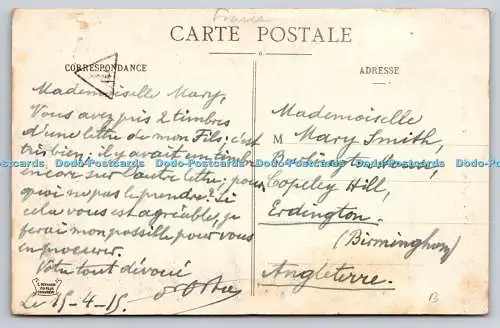 France
CARTE POSTALE
CORRESPONDANCE
Mademoiselle Mary,
Vous avez pris 2 timbres
d'une lettre de mon Fils; c'est
très bien; il y avait un timbre
encore sur l'autre lettre; pour
quoi ne pas le prendre. Si
cela vous est agréable, je
ferai mon possible pour vous
en procurer.
Votre tout dévoué
Le 15-4-15.
ADRESSE
Mademoiselle
M Mary Smith,
Copeley Hill,
Erdington.
(Birmingham)
Angleterre.
B
Dodo-Postcards Dodo-Postcards Dodo-Postcards Dodo-Postcards Dodo-Postcards